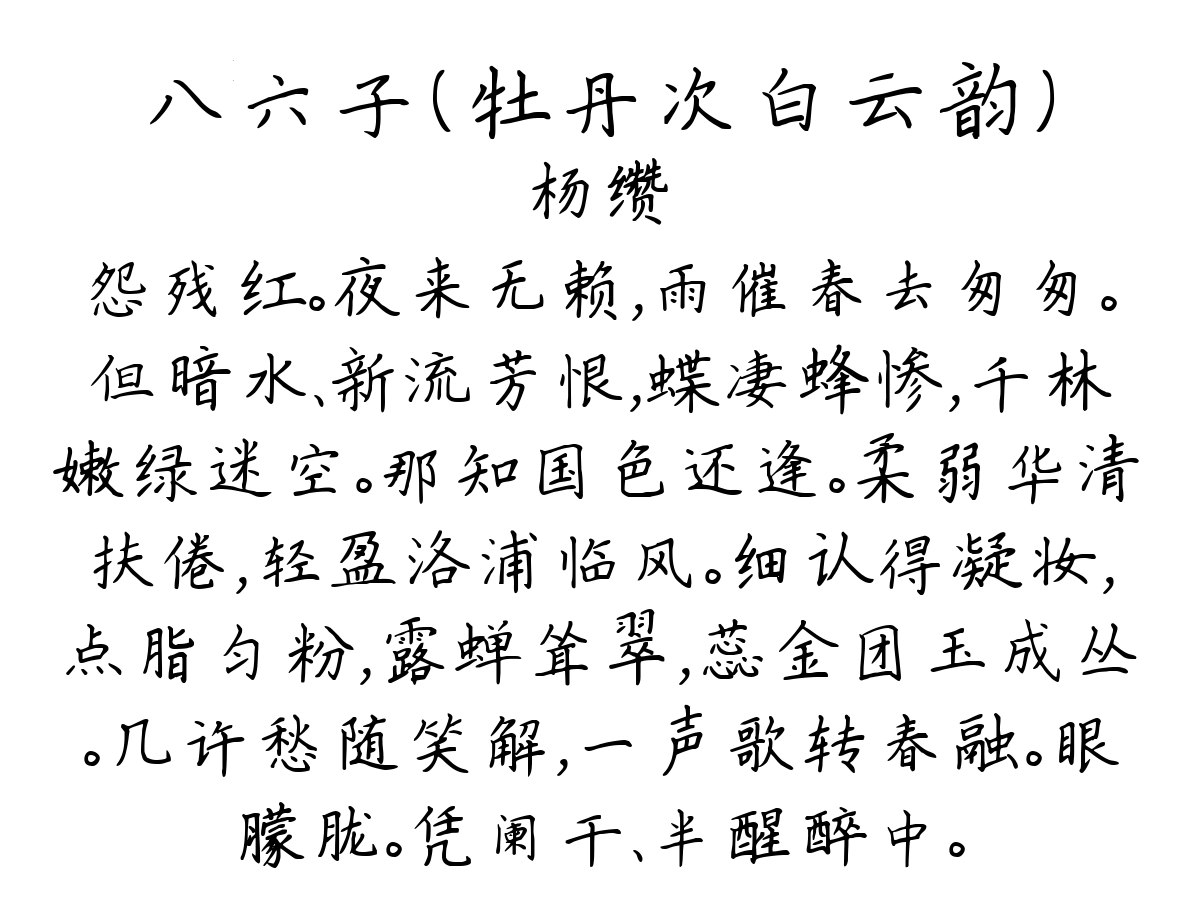 八六子(牡丹次白云韵)
杨缵
怨残红。夜来无赖,雨催春去匆匆。
但暗水、新流芳恨,蝶凄蜂惨,千林
嫩绿迷空。那知国色还逢。柔弱华清
扶倦,轻盈洛浦临风。细认得凝妆,
点脂匀粉,露蝉耸翠,蕊金团玉成丛
。几许愁随笑解,一声歌转春融。眼
朦胧。凭阑干、半醒醉中。